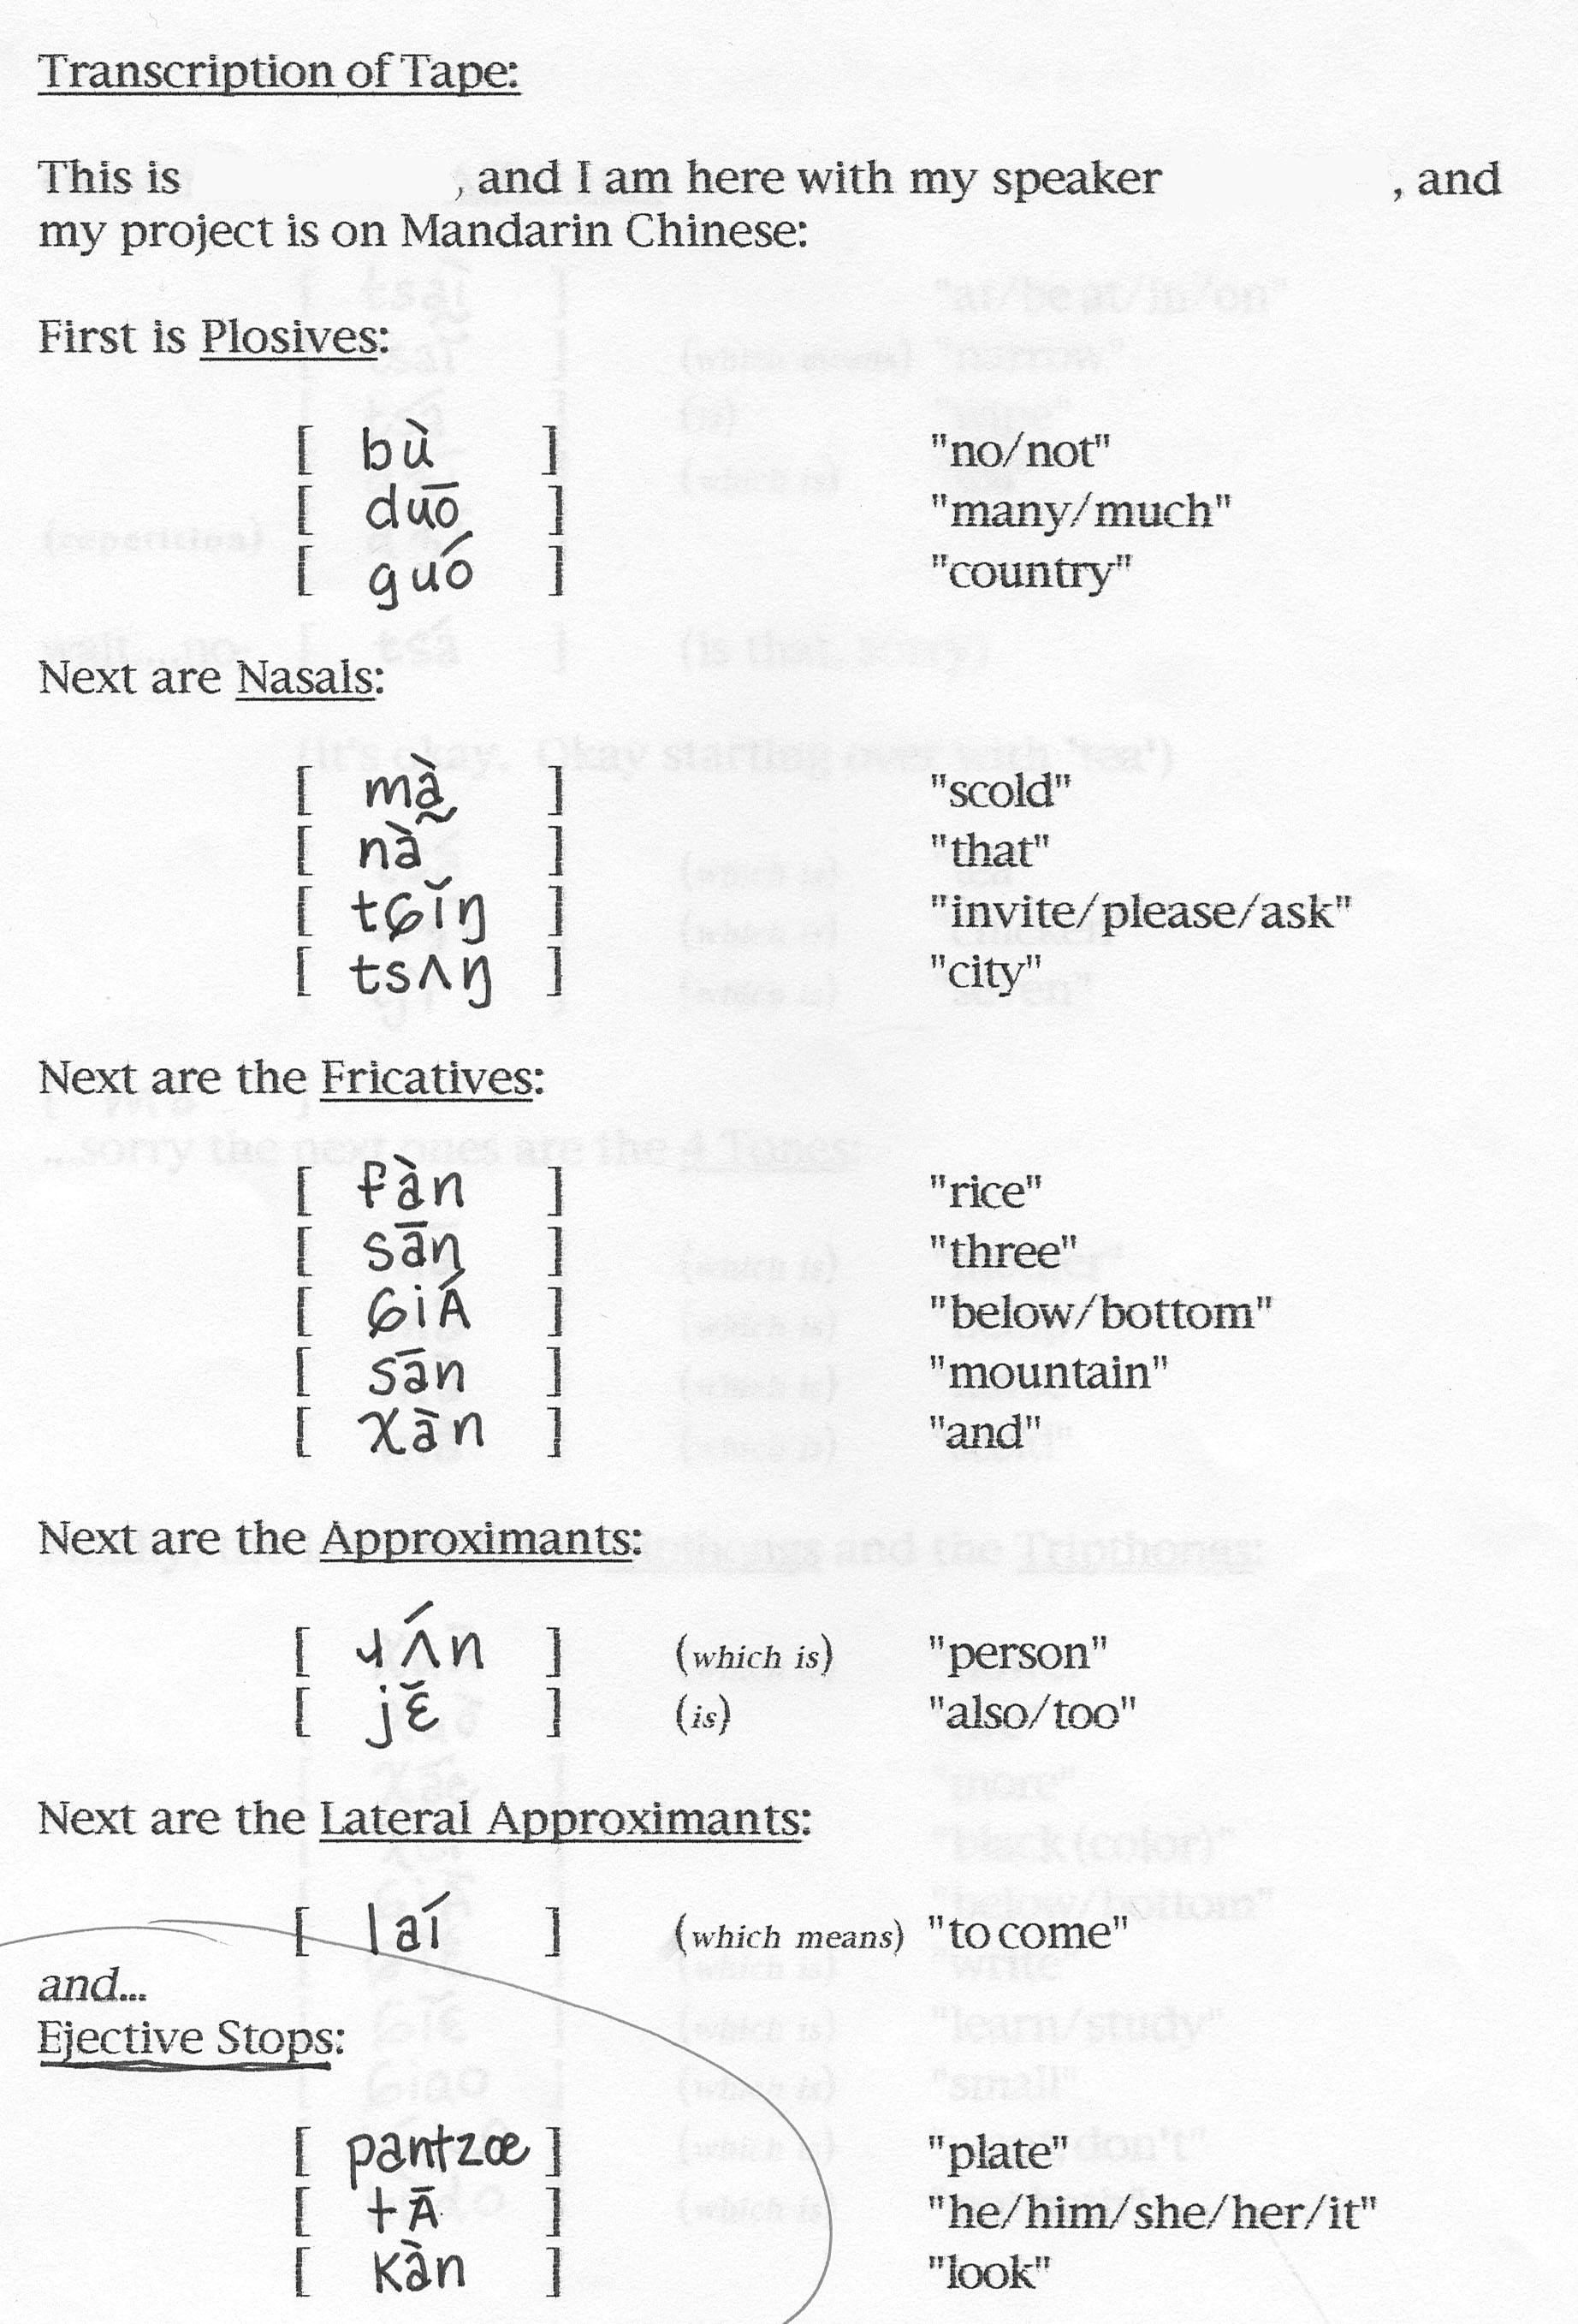 Transcription of Tape:
This is , and I am here with my speaker , and
my project is on Mandarin Chinese:
First is Plosives:
[ bù ] "no/not"
[ duō ] "many/much"
[ guó ] "country"
Next are Nasals:
[ mà ] "scold"
[ nà̃ ] "that"
[ tɕĭŋ ] "invite/please/ask"
[ tsʌŋ ] "city"
Next are the Fricatives:
[ fàn ] "rice"
[ sān ] "three"
[ ɕiÁ ] "below/bottom"
[ sān ] "mountain"
[ χàn ] "and"
Next are the Approximants:
[ ɻʌ́n ] (which is) "person"
[ jɛ̆ ] (is) "also/too"
Next are the Lateral Approximants:
[ laí ] (which means) "to come"
and...
Ejective Stops:
[ pantzœ ] "plate"
[ tĀ ] "he/him/she/her/it"
[ kàn ] "look"